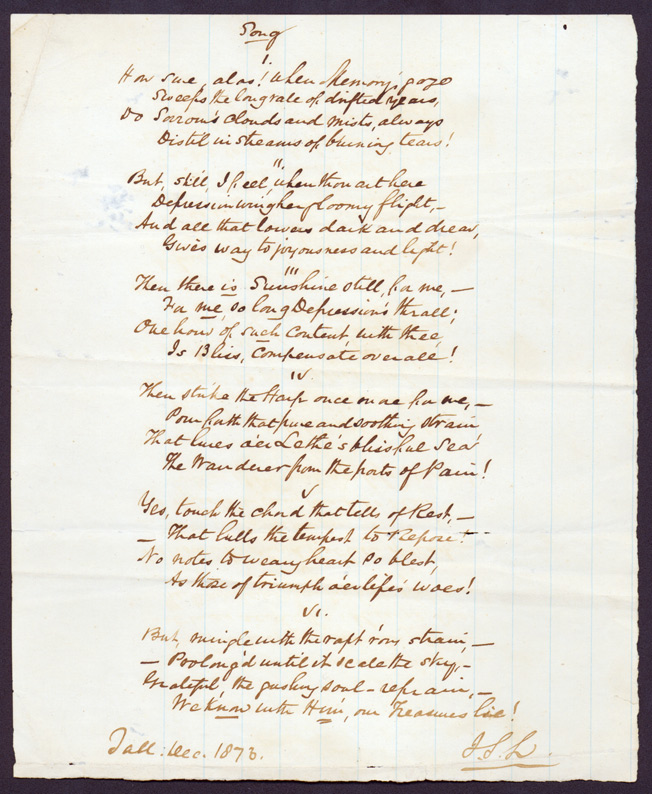 Song
I.
How sure, alas! when Memory's gaze
Sweeps the long vale of drifted years,
Do Sorrow's clouds and mists, always
Distil in streams of burning tears!
II.
But, still, I feel, when thou art here
Depression wings her gloomy flight,—
And all that lowers dark and drear,
Gives way to joyousness and light!
III
Then there is Sunshine still, for me,—
For me, so long Depression's thrall;
One hour of such content, with thee,
Is Bliss, Compensate over all!
IV.
Then strike the Harp once more for me,—
Pour forth that pure and soothing strain
That lures o'er Lethe's blissful Sea
The Wanderer from the ports of Pain!
V
Yes, touch the chord that tells of Rest,—
— That lulls the tempest to Repose!—
No notes to weary heart so blest,
As those of triumph o'er life's woes!
VI.
But, mingle with the rapt'rous strain,—
— Prolong'd until it scale the sky,—
Grateful, the gushing soul-refrain,—
We Know with Him, our Treasures lie!
Tall: Dec. 1873.
J.S.L.